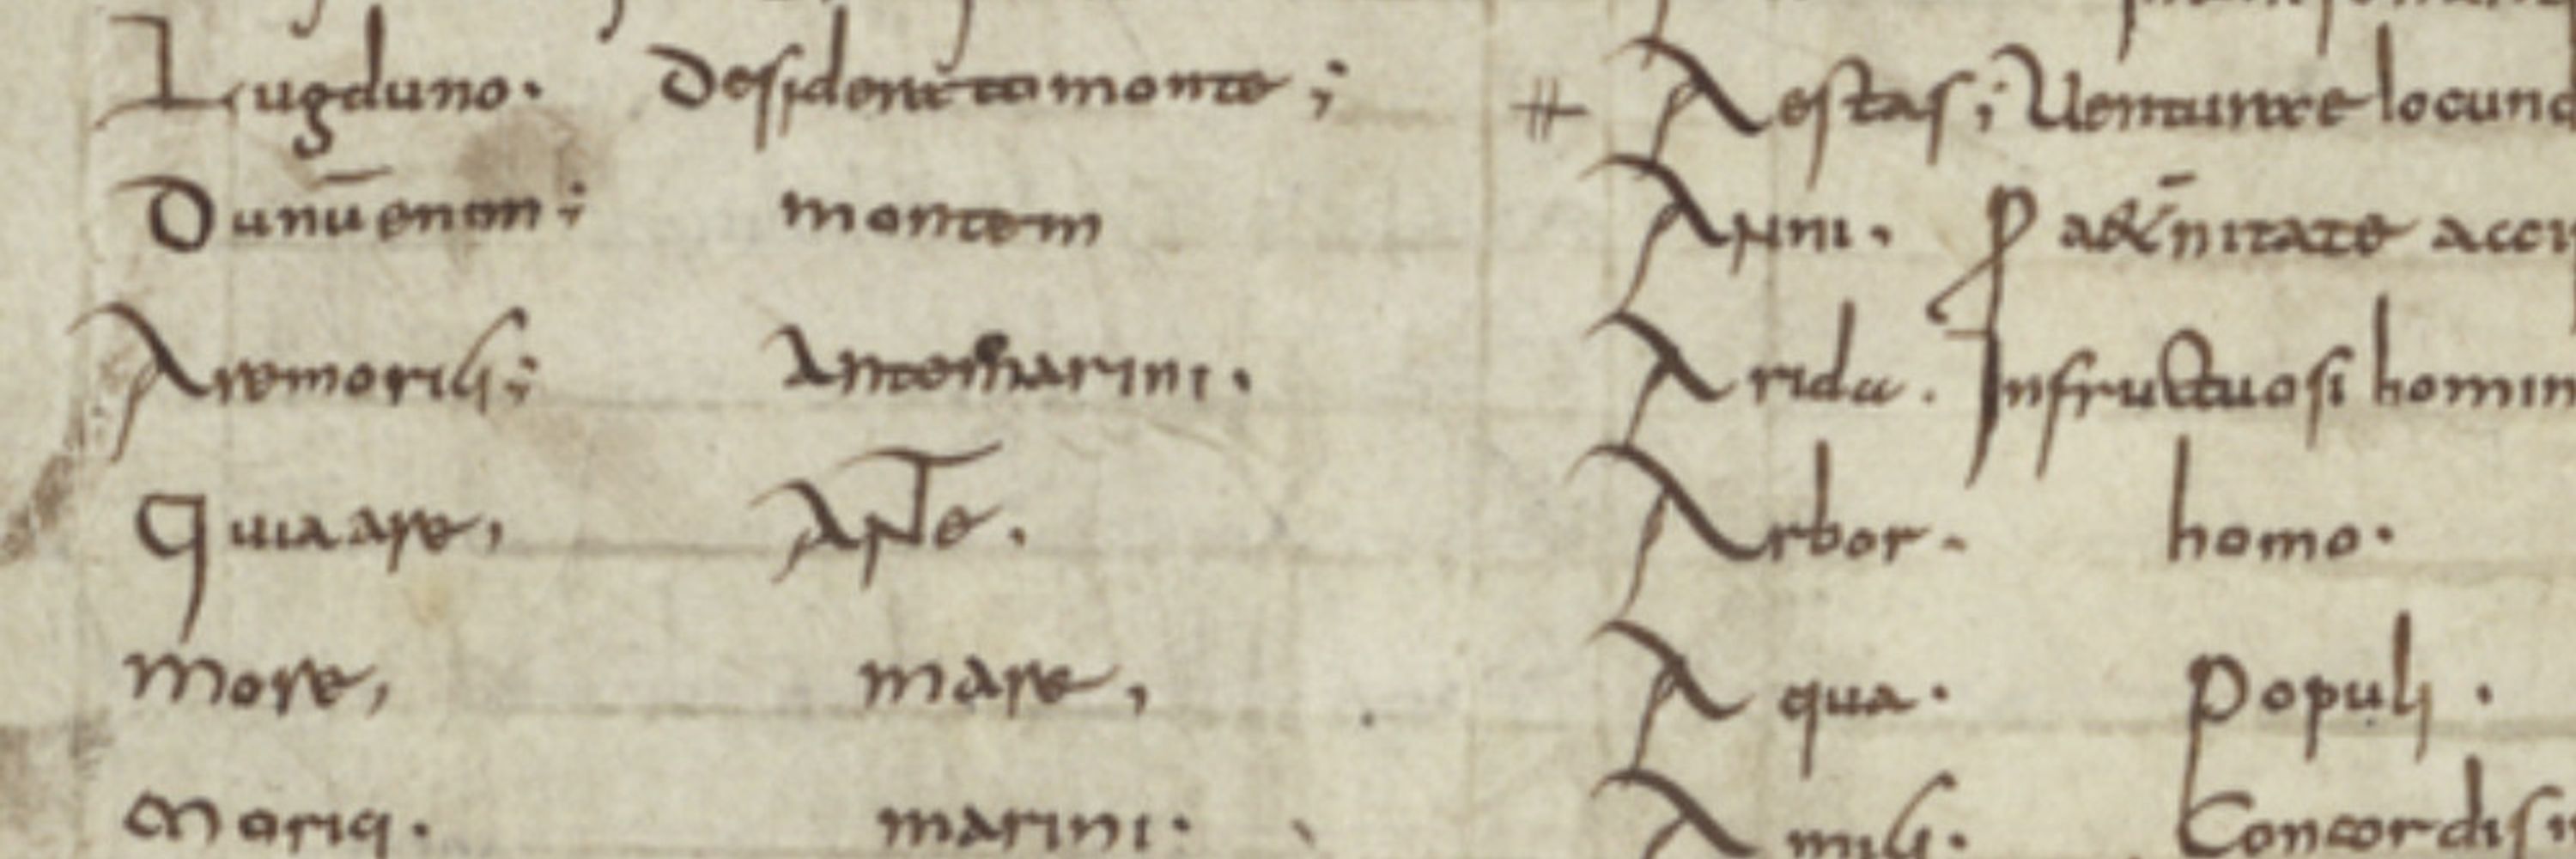 Lugduno. Desideratomonte;
Dunū enim; montem
Aremorici; Antemarini.
Quia are, Ante.
more, mare,
Morici. marini.
Aestas; Uentura e locund
Apni. P aet̄nitate acci
Arida. Infructuosi homin
Arbor. homo.
Aqua. Populi.
Concordis